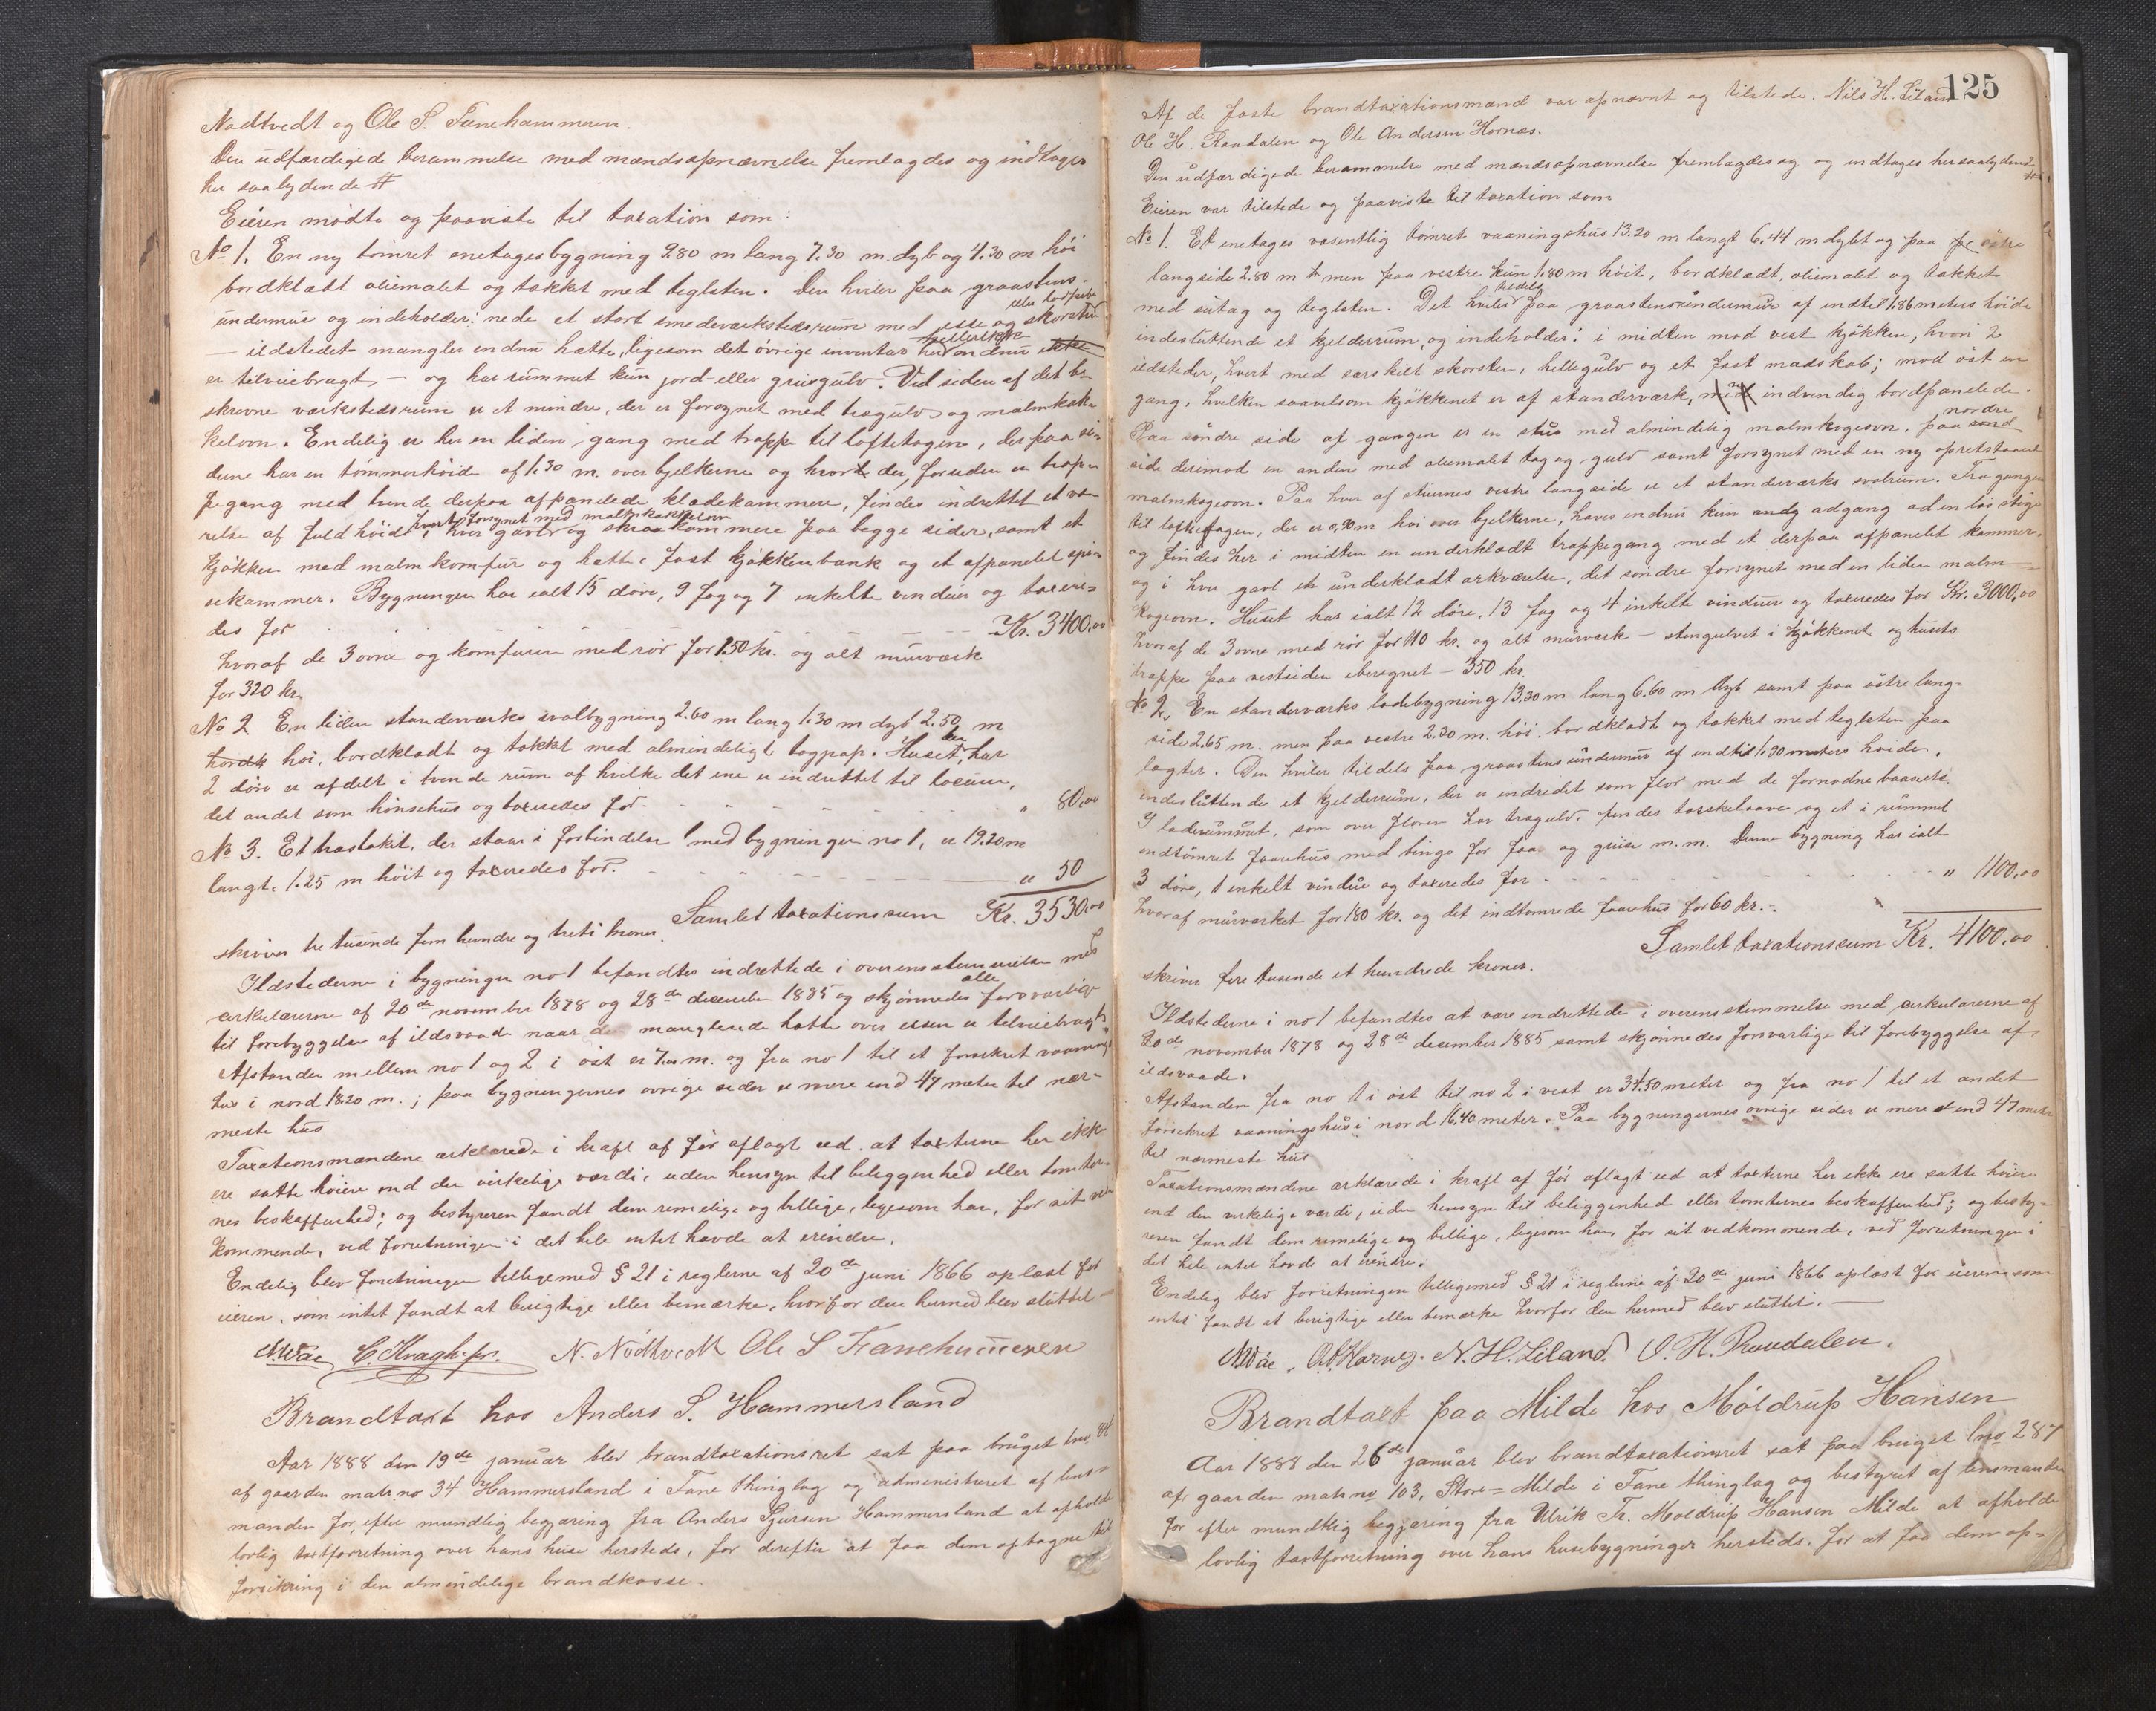 Nødtvedt og Ole S. Fanehammeren.
Den udfærdigede berammelse med mændsopnævnelse fremlagdes og indtages
her saalydende #
Eieren mødte og paaviste til taxation som:
No 1. En ny tømret enetagesbygning 9.80 m lang 7.30 m. dyb og 4.30 m høi
bordklædt oliemalet og tækket med teglsten. Den hviler paa graastens-
undermur og indeholder: nede et stort smedeværkstedsrum med esse og skorsten
— ildstedet mangler endnu hætte, ligesom det øvrige inventar heller ikke endnu
er tilveiebragt — og har rummet kun jord- eller grusgulv. Ved siden af det be-
skrevne værkstedsrum er et mindre, der er forsynet med trægulv og malmkak-
kelovn. Endelig er her en liden gang med trapp til loftetagen, der paa si-
derne har en tømmerhøide af 1.30 m. over bjelkerne og hvor der, foruden en trap-
pegang med tvende derpaa afpanelede klædekammere, findes indrettet et væ-
relse af fuld høide i hver gavl, hvert forsynet med malmkakkelovn og skraakammere paa begge sider, samt et
kjøkken med malmkomfur og hætte, fast kjøkkenbænk og et afpanelet spi-
sekammer. Bygningen har ialt 15 døre, 9 fag og 7 enkelte vinduer og taxere-
des for Kr. 3400,00
hvoraf de 3 ovne og komfuren med rør for 150 kr. og alt murværk
for 320 kr.
No 2. En liden standerværks svalbygning 2.60 m lang 1.30 m dyb 2.50 m
høi, bordklædt og tækket med almindeligt tagpap. Huset, der har
2 døre er afdelt i tvende rum af hvilke det ene er indrettet til locum,
det andet som hønsehus og taxeredes for " 80,00
No 3. Et træstakit, der staar i forbindelse med bygningen no 1, er 19.20 m
langt, 1.25 m høit og taxeredes for. " 50
Samlet taxationssum Kr. 3530,00
skriver tre tusinde fem hundre og treti kroner.
Ildstederne i bygningen no 1 befandtes indrettede i overensstemmelse med
cirkulærerne af 20de november 1878 og 28de december 1885 og skjønnedes alle forsvarlige
til forebyggelse af ildsvaade naar den manglende hætte over essen er tilveiebragt.
Afstanden mellem no 1 og 2 i øst er 7.00 m. og fra no 1 til et forsikret vaanings-
hus i nord 18.20 m.; paa bygningernes øvrige sider er mere end 47 meter til nær-
meste hus
Taxationsmændene erklærede i kraft af før aflagt ed at taxterne her ikke
ere satte høiere end den virkelige værdi, uden hensyn til beliggenhed eller tomter-
nes beskaffenhed; og bestyreren fandt dem rimelige og billige, ligesom han, for sit ved-
kommende, ved forretningen i det hele intet havde at erindre.
Endelig blev forretningen tilligemed § 21 i reglerne af 20de juni 1866 oplæst for
eieren, som intet fandt at berigtige eller bemærke, hvorfor den hermed blev sluttet.
C. Kragh. fr. N. Nödtvedt Ole S Fanehammeren
Brandtaxt hos Anders S. Hammersland
Aar 1888 den 19de januar blev brandtaxationsret sat paa bruget lno 84
af gaarden matr. no 34 Hammersland i Fane thinglag og administreret af lens-
manden for, efter mundtlig begjæring fra Anders Sjursen Hammersland at afholde
lovlig taxtforretning over hans huse hersteds, for derefter at faa dem optagne til
forsikring i den almindelige brandkasse.
125
Af de faste brandtaxationsmænd var opnævnt og tilstede. Nils H. Liland
Ole H. Raadalen og Ole Andersen Hornæs.
Den udfærdigede berammelse med mændsopnævnelse fremlagdes og indtages her saalydende
Eieren var tilstede og paaviste til taxation som
No 1. Et enetages væsentlig tømret vaaningshus 13.20 m langt 6.44 m dybt og paa østre
langside 2.80 m men paa vestre kun 1.80 m høit, bordklædt, oliemalet og tækket
med sutag og teglsten. Det hviler tildels paa graastensundermur af indtil 1.86 meters høide
indesluttende et kjelderrum, og indeholder: i midten mod vest kjøkken, hvori 2
ildsteder, hvert med særskilt skorsten, hellegulv og et fast madskab; mod øst en
gang, hvilken saavelsom kjøkkenet er af standerværk, indvendig bordpanelede.
Paa søndre side af gangen er en stue med almindelig malmkogeovn, paa nordre
side derimod en anden med oliemalet tag og gulv samt forsynet med en ny opretstaaende
malmkogeovn. Paa hver af stuernes vestre langside er et standerværks svalrum. Fra gangen
til loftetagen, der er 0,90 m høi over bjelkerne, haves endnu kun adgang ad en løs stige
og findes her i midten en underklædt trappegang med et derpaa afpanelet kammer,
og i hver gavl et underklædt arkværelse, det søndre forsynet med en liden malm-
kogeovn. Huset har ialt 12 døre, 13 fag og 4 enkelte vinduer og taxeredes for Kr. 3000,00
hvoraf de 3 ovne med rør for 110 kr. og alt murværk — stengulvet i kjøkkenet og husets
trappe paa vestsiden iberegnet — 350 kr.
No 2. En standerværks ladebygning 13.30 m lang 6.60 m dyb samt paa østre lang-
side 2.65 m. men paa vestre 2.20 m. høi bordklædt og tækket med teglsten paa
lægter. Den hviler tildels paa graastens undermur af indtil 1.90 meters høide,
indesluttende et kjelderrum, der er indredet som flor med de fornødne baase.
I laderummet, som over floren har trægulv, findes tærskelaave og et i rummet
indtømret faarehus med binge for faar og grise m.m. Denne bygning har ialt
3 døre, 1 enkelt vindue og taxeredes for " 1100,00
hvoraf murværket for 180 kr. og det indtømrede faarehus for 60 kr.
Samlet taxationssum Kr. 4100,00
skriver fire tusende et hundrede kroner.
Ildstederne i no 1 befandtes at være indrettede i overensstemmelse med cirkulærerne af
20de november 1878 og 28de december 1885 samt skjønnedes forsvarlige til forebyggelse af
ildsvaade.
Afstanden fra no 1 i øst til no 2 i vest er 34.50 meter og fra no 1 til et andet
forsikret vaaningshus i nord 16,40 meter. Paa bygningernes øvrige sider er mere end 47 meter
til nærmeste hus
Taxationsmændene erklærede i kraft af før aflagt ed at taxterne her ikke ere satte høiere
end den virkelige værdi, uden hensyn til beliggenhed eller tomternes beskaffenhed; og besty-
reren fandt dem rimelige og billige, ligesom han, for sit vedkommende, ved forretningen i
det hele intet havde at erindre.
Endelig blev forretningen tilligemed § 21 i reglerne af 20de juni 1866 oplæst for eieren som
intet fandt at berigtige eller bemærke hvorfor den hermed blev sluttet. —
O. A. Hornes. N. H. Liland. O. H. Raudalen.
Brandtaxt paa Milde hos Møldrup Hansen
Aar 1888 den 26de januar blev brandtaxationsret sat paa bruget lno 287
af gaarden matr. no 103, Store-Milde i Fane thinglag og bestyret af lensmanden
for efter mundtlig begjæring fra Ulrik Fr. Moldrup Hansen Milde at afholde
lovlig taxtforretning over hans husebygninger hersteds. for at faa dem op-